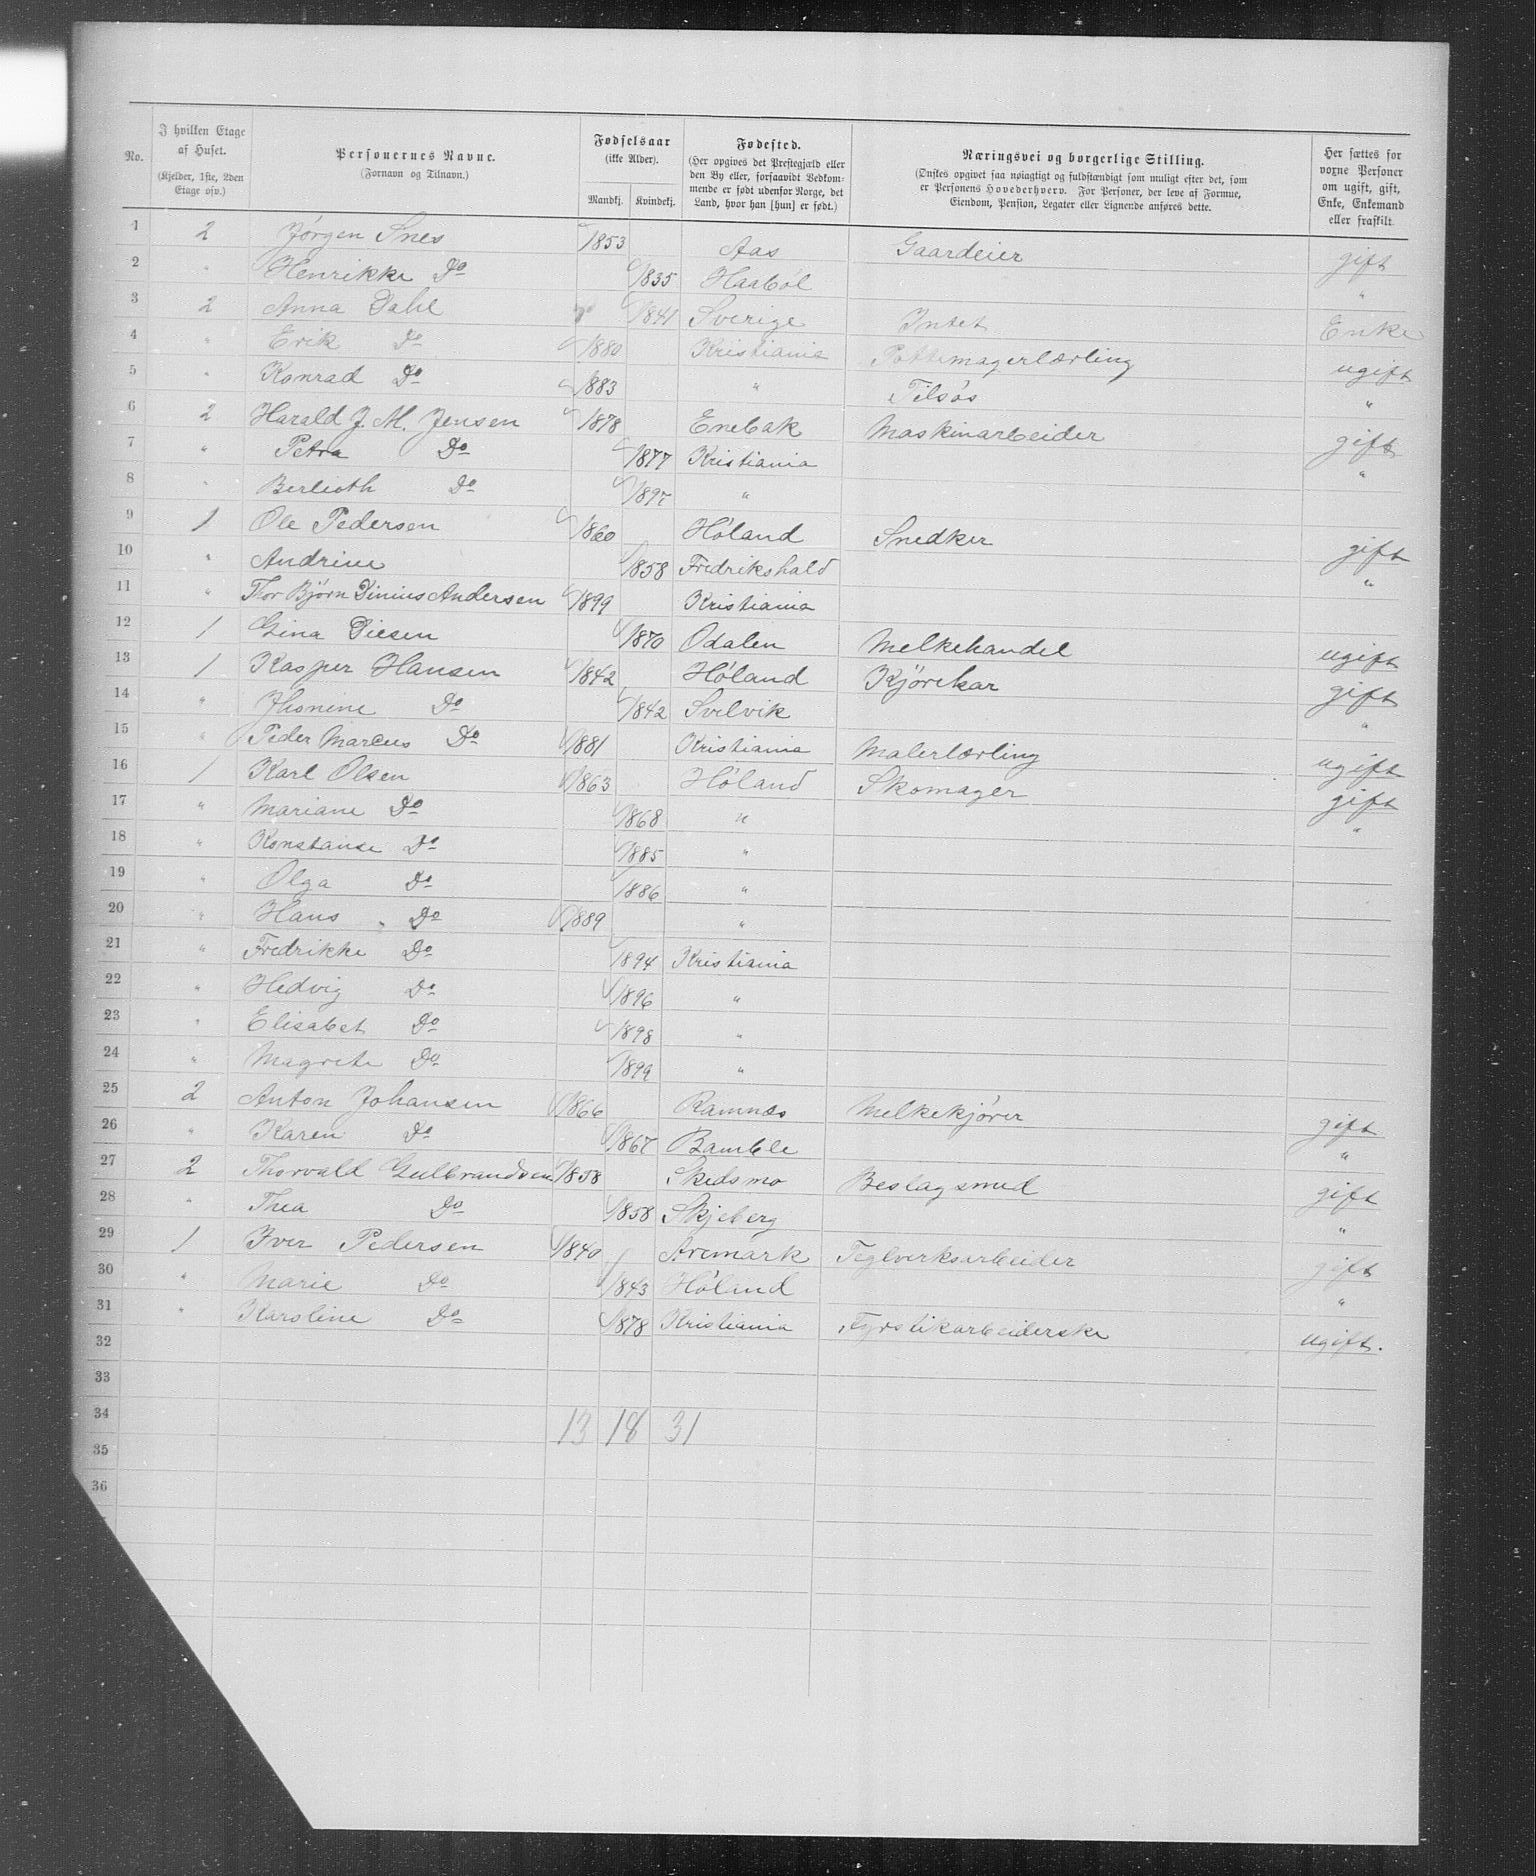 No. | I hvilken Etage af Huset. (Kjelder, 1ste, 2den Etage osv.) | Personernes Navne. (Fornavn og Tilnavn.) | Fødselsaar (ikke Alder). Mandkj. | Kvindekj. | Fødested. (Her opgives det Prestegjæld eller den By eller, forsaavidt Vedkommende er født udenfor Norge, det Land, hvor han [hun] er født.) | Næringsvei og borgerlige Stilling. (Ønskes opgivet saa nøiagtigt og fuldstændigt som muligt efter det, som er Personens Hovederhverv. For Personer, der leve af Formue, Eiendom, Pension, Legater eller Lignende anføres dette.) | Her sættes for voxne Personer om ugift, gift, Enke, Enkemand eller fraskilt.
1 2 Jørgen Snes 1853 Aas Gaardeier gift
2 " Henrikke Do 1835 Haabøl "
3 2 Anna Dahl 1841 Sverige Intet Enke
4 " Erik Do 1880 Kristiania Pottemagerlærling ugift
5 " Konrad Do 1883 " Tilsøs "
6 2 Harald J. M. Jensen 1878 Enebak Maskinarbeider gift
7 " Petra Do 1877 Kristiania "
8 " Berlioth Do 1897 "
9 1 Ole Pedersen 1860 Høland Snedker gift
10 " Andrine 1858 Fredrikshald "
11 " Thor Bjørn Dinius Andersen 1899 Kristiania
12 1 Gina Diesen 1870 Odalen Melkehandel ugift
13 1 Kasper Hansen 1842 Høland Kjørekar gift
14 " Jhonine Do 1842 Svelvik "
15 " Peder Marcus Do 1881 Kristiania Malerlærling ugift
16 1 Karl Olsen 1863 Høland Skomager gift
17 " Mariane Do 1868 " "
18 " Konstanse Do 1885 "
19 " Olga Do 1886 "
20 " Hans Do 1889 "
21 " Fredrikke Do 1894 Kristiania
22 " Hedvig Do 1896 "
23 " Elisabet Do 1898 "
24 " Magrete Do 1899 "
25 2 Anton Johansen 1866 Ramnæs Melkekjører gift
26 " Karen Do 1867 Bamble "
27 2 Thorvald Gulbrandsen 1858 Skedsmo Beslagsmed gift
28 " Thea Do 1858 Skjeberg "
29 1 Iver Pedersen 1840 Aremark Teglverksarbeider gift
30 " Marie Do 1843 Høland "
31 " Karoline Do 1878 Kristiania Fyrstikarbeiderske ugift.
32
33
34 13 18 31
35
36